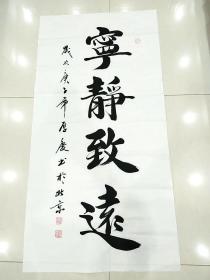 寧靜致遠
歲次庚子年厚慶书於北京